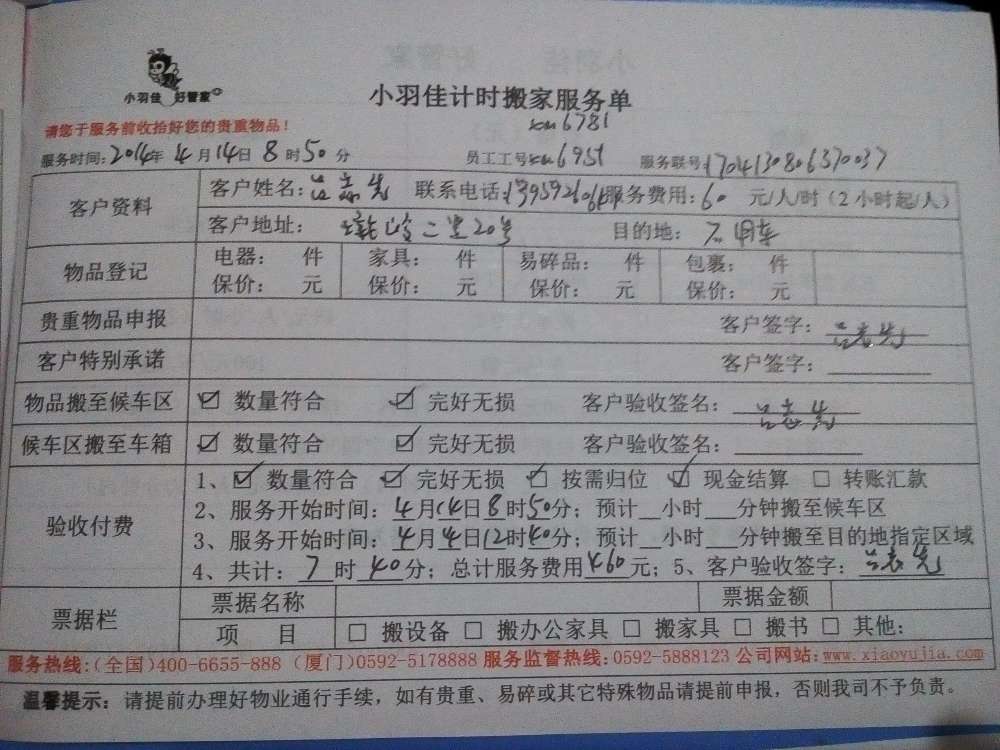 小羽佳 好管家
小羽佳计时搬家服务单
请您于服务前收拾好您的贵重物品！
km6781
服务时间：2014年4月14日8时50分 员工工号km6951 服务联号：1704130806370037
客户资料
客户姓名： 联系电话： 服务费用：60 元/人/时（2小时起/人）
客户地址： 二里20号 目的地：不用车
物品登记
电器： 件 家具： 件 易碎品： 件 包裹： 件
保价： 元 保价： 元 保价： 元 保价： 元
贵重物品申报 客户签字：
客户特别承诺 客户签字：
物品搬至候车区 ☑ 数量符合 ☑ 完好无损 客户验收签名：
候车区搬至车箱 ☑ 数量符合 ☑ 完好无损 客户验收签名：
验收付费
1、☑ 数量符合 ☑ 完好无损 ☑ 按需归位 ☑ 现金结算 □ 转账汇款
2、服务开始时间：4月14日8时50分；预计__小时___分钟搬至候车区
3、服务开始时间：4月4日12时40分；预计__小时___分钟搬至目的地指定区域
4、共计：7时40分；总计服务费用460元；5、客户验收签字：
票据栏
票据名称 票据金额
项 目 □ 搬设备 □ 搬办公家具 □ 搬家具 □ 搬书 □ 其他：
服务热线：(全国)400-6655-888 (厦门)0592-5178888 服务监督热线：0592-5888123 公司网站：www.xiaoyujia.com
温馨提示：请提前办理好物业通行手续，如有贵重、易碎或其它特殊物品请提前申报，否则我司不予负责。